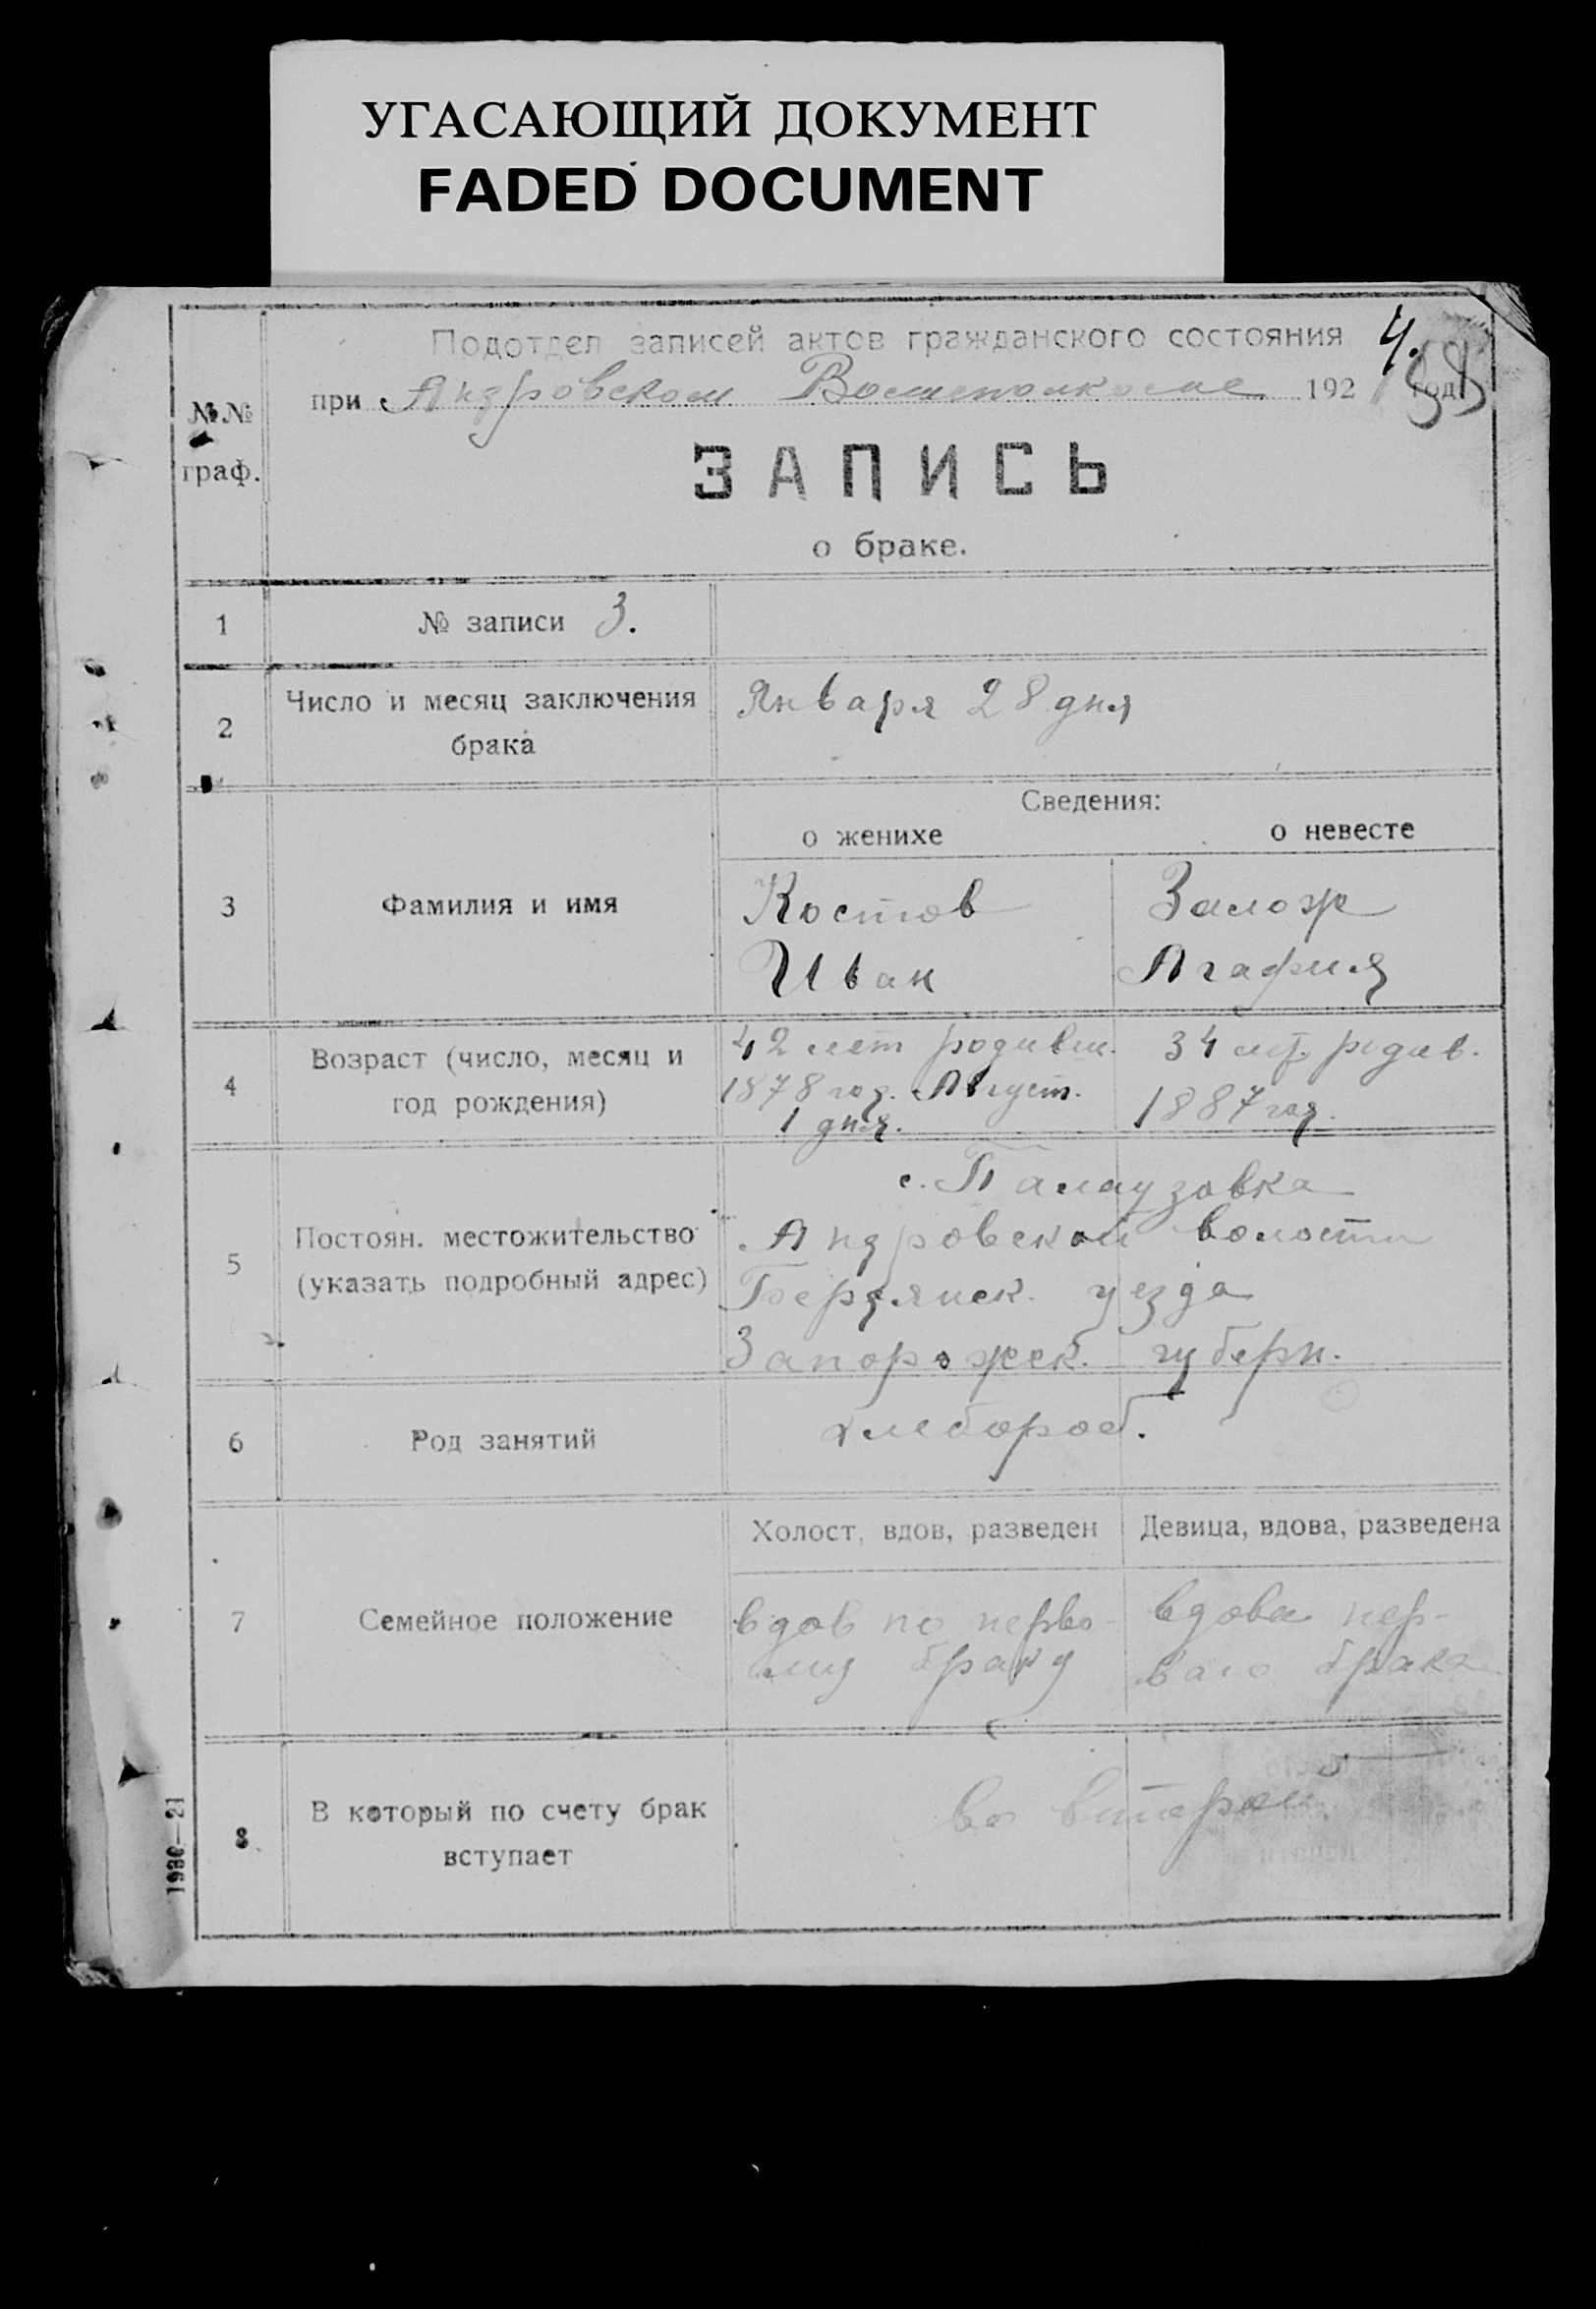 УГАСАЮЩИЙ ДОКУМЕНТ
FADED DOCUMENT
Подотдел записей актов гражданского состояния 4.
при Андровском 192 год
№№
граф.
ЗАПИСЬ
о браке.
1 № записи 3.
2 Число и месяц заключения брака Января 28 дня
Сведения:
о женихе о невесте
3 Фамилия и имя
Костов
Иван
Агафия
4 Возраст (число, месяц и год рождения)
42 лет родивш.
1878 год. Август.
1 дня.
34 лет родив.
1887 год.
5 Постоян. местожительство (указать подробный адрес)
с. Палаузовка
Андровской волости
Бердянск. уезда
Запорожск. губерн.
6 Род занятий хлебороб.
Холост, вдов, разведен Девица, вдова, разведена
7 Семейное положение
вдов по перво-
му браку
вдова пер-
ваго брака
8 В который по счету брак вступает во второй
1930—21